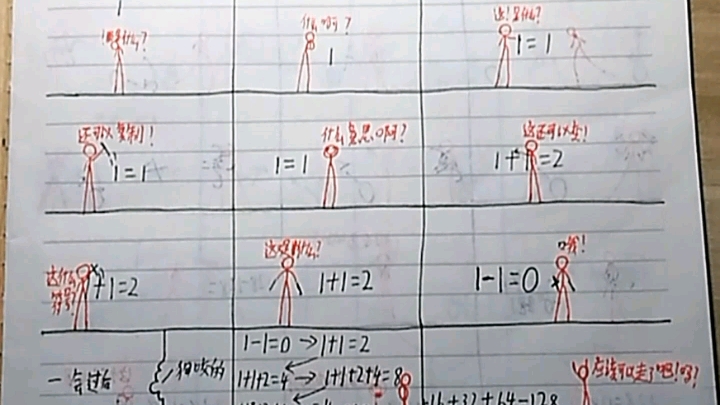 什么啊?
1
这是什么?
1=1
还可以复制!
1=1
什么意思啊?
1=1
这还可以变!
1+1=2
这什么
符号?
+1=2
1+1=2
哦!
1-1=0
一会过后
1-1=0→1+1=2
1+1+2=4→1+1+2+4=8
+16+32+64=128
应该可以走了吧!